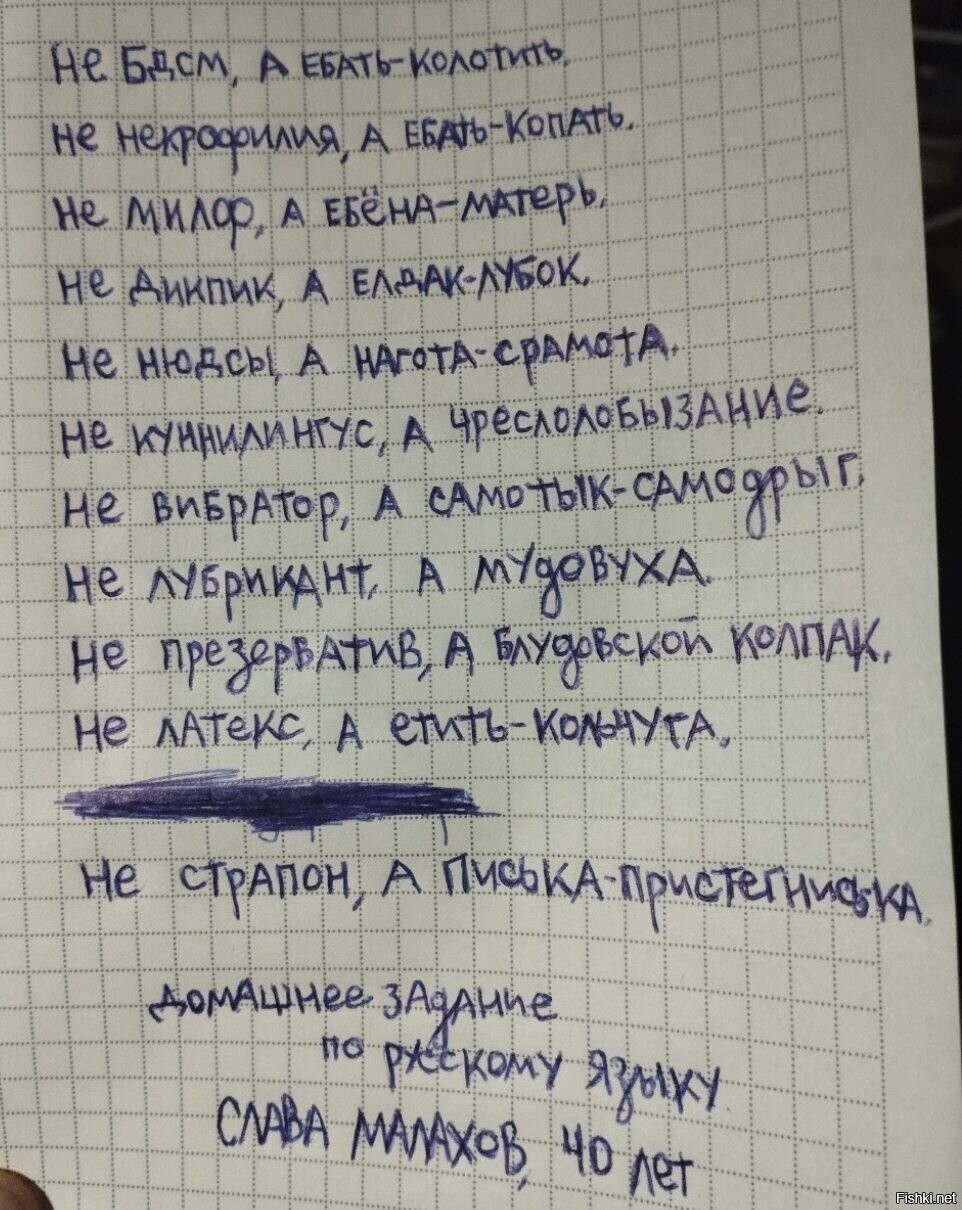 Не БДСМ, А ЕБАТЬ-КОЛОТИТЬ.
Не некрофилия, А ЕБАТЬ-КОПАТЬ.
Не МИЛФ, А ЕБЁНА-МАТЕРЬ.
Не ДИКПИК, А ЕЛДАК-ЛУБОК.
Не НЮДСЫ, А НАГОТА-СРАМОТА.
Не КУННИЛИНГУС, А ЧРЕСЛОЛОБЫЗАНИЕ.
Не ВИБРАТОР, А САМОТЫК-САМОДРЫГ.
Не ЛУБРИКАНТ, А МУДОВУХА.
Не ПРЕЗЕРВАТИВ, А БЛУДОВСКОЙ КОЛПАК.
Не ЛАТЕКС, А ЕТИТЬ-КОЛЬЧУГА.
Не СТРАПОН, А ПИСЬКА-ПРИСТЕГНИСЬКА.
ДОМАШНЕЕ ЗАДАНИЕ
ПО РУССКОМУ ЯЗЫКУ
СЛАВА МАЛАХОВ, 40 ЛЕТ
Fishki.net